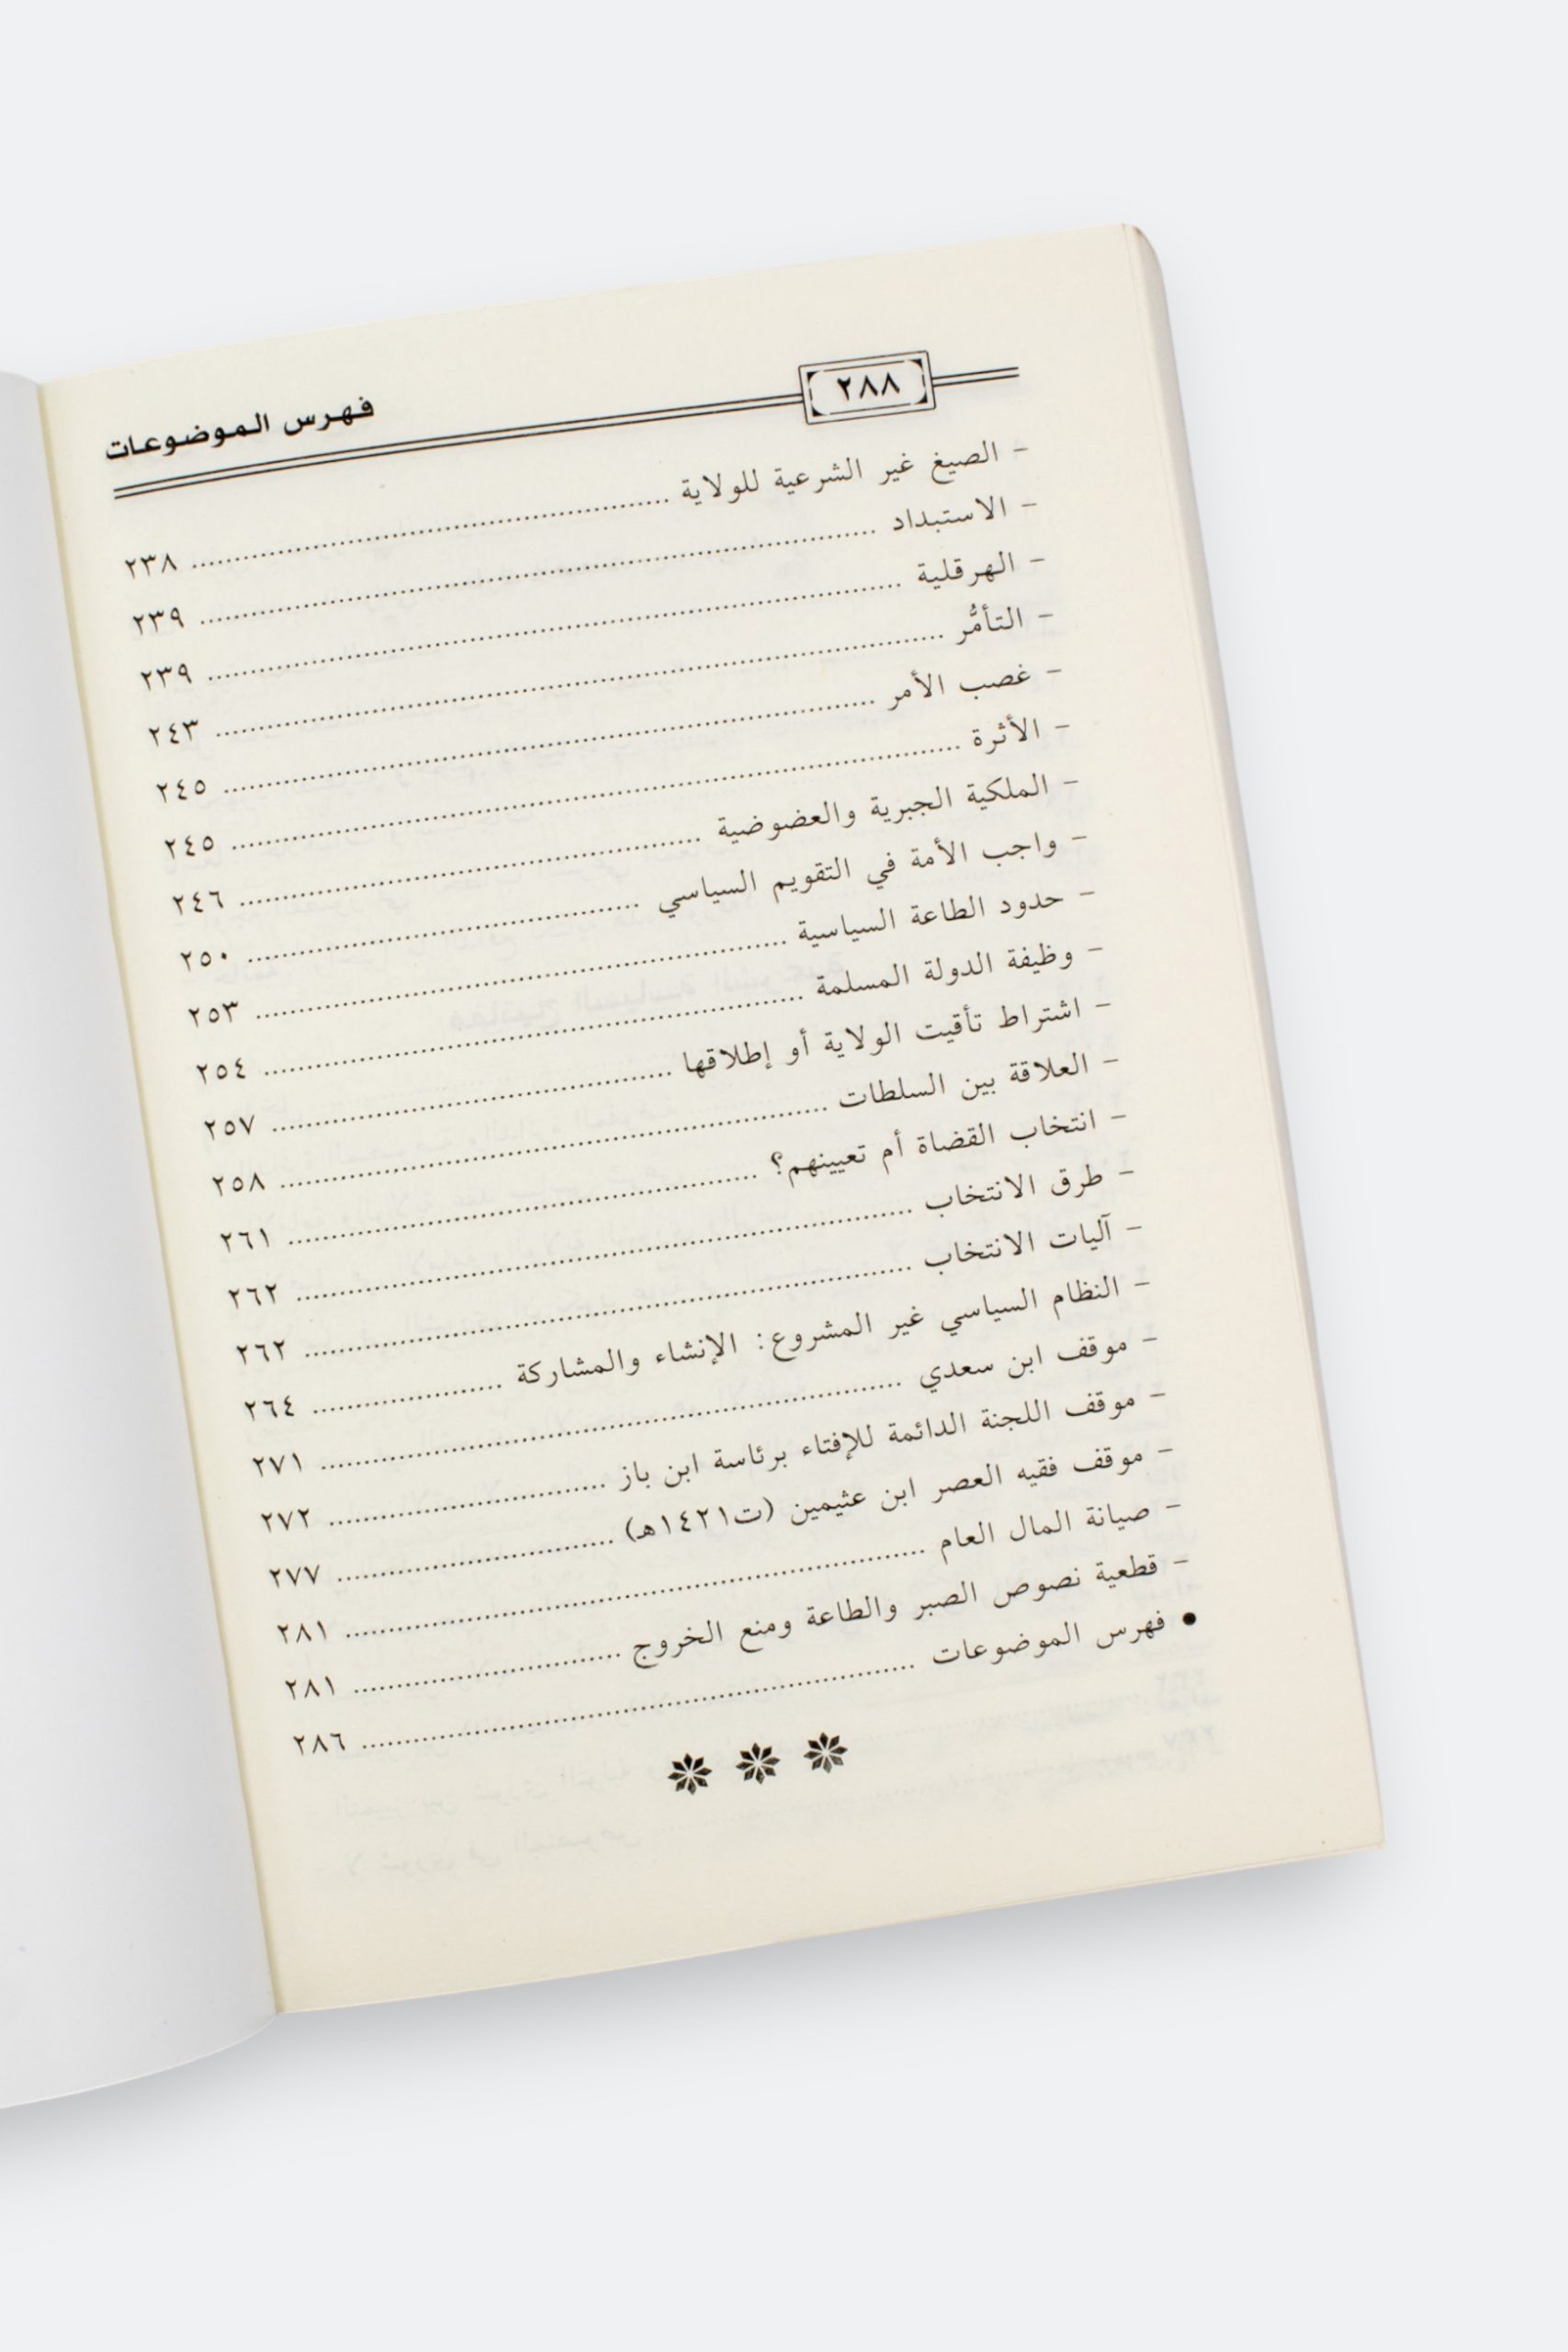 ٢٨٨ فهرس الموضوعات
- الصيغ غير الشرعية للولاية ........ ٢٣٨
- الاستبداد ........ ٢٣٩
- الهرقلية ........ ٢٣٩
- التأمُّر ........ ٢٤٣
- غصب الأمر ........ ٢٤٥
- الأثرة ........ ٢٤٥
- الملكية الجبرية والعضوضية ........ ٢٤٦
- واجب الأمة في التقويم السياسي ........ ٢٥٠
- حدود الطاعة السياسية ........ ٢٥٣
- وظيفة الدولة المسلمة ........ ٢٥٤
- اشتراط تأقيت الولاية أو إطلاقها ........ ٢٥٧
- العلاقة بين السلطات ........ ٢٥٨
- انتخاب القضاة أم تعيينهم؟ ........ ٢٦١
- طرق الانتخاب ........ ٢٦٢
- آليات الانتخاب ........ ٢٦٢
- النظام السياسي غير المشروع: الإنشاء والمشاركة ........ ٢٦٤
- موقف ابن سعدي ........ ٢٧١
- موقف اللجنة الدائمة للإفتاء برئاسة ابن باز ........ ٢٧٢
- موقف فقيه العصر ابن عثيمين (ت١٤٢١هـ) ........ ٢٧٧
- صيانة المال العام ........ ٢٨١
- قطعية نصوص الصبر والطاعة ومنع الخروج ........ ٢٨١
• فهرس الموضوعات ........ ٢٨٦